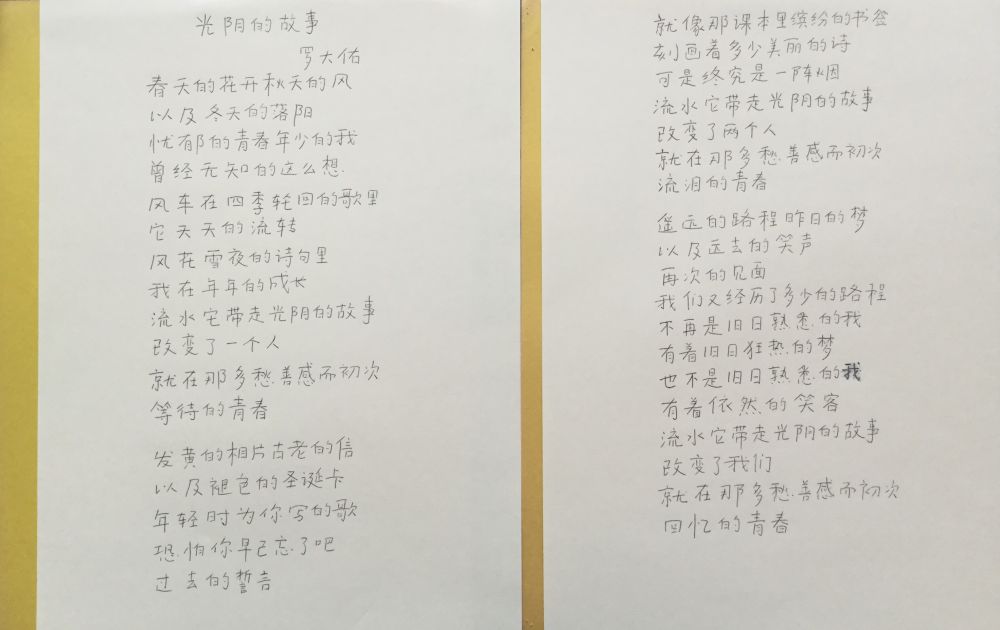 光阴的故事
罗大佑
春天的花开秋天的风
以及冬天的落阳
忧郁的青春年少的我
曾经无知的这么想
风车在四季轮回的歌里
它天天的流转
风花雪夜的诗句里
我在年年的成长
流水它带走光阴的故事
改变了一个人
就在那多愁善感而初次
等待的青春
发黄的相片古老的信
以及褪色的圣诞卡
年轻时为你写的歌
恐怕你早已忘了吧
过去的誓言
就像那课本里缤纷的书签
刻画着多少美丽的诗
可是终究是一阵烟
流水它带走光阴的故事
改变了两个人
就在那多愁善感而初次
流泪的青春
遥远的路程昨日的梦
以及远去的笑声
再次的见面
我们又经历了多少的路程
不再是旧日熟悉的我
有着旧日狂热的梦
也不是旧日熟悉的我
有着依然的笑容
流水它带走光阴的故事
改变了我们
就在那多愁善感而初次
回忆的青春